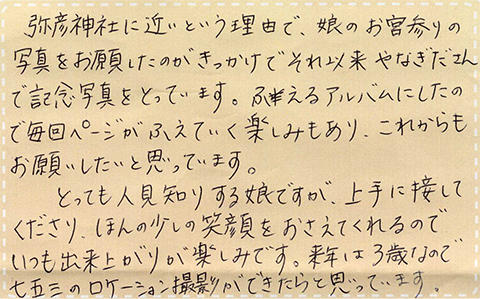 弥彦神社に近いという理由で、娘のお宮参りの
写真をお願したのがきっかけでそれ以来やなぎださん
で記念写真をとっています。ふえるアルバムにしたの
で毎回ページがふえていく楽しみもあり、これからも
お願いしたいと思っています。
とっても人見知りする娘ですが、上手に接して
くださり、ほんの少しの笑顔をおさえてくれるので
いつも出来上がりが楽しみです。来年は3歳なので
七五三のロケーション撮影ができたらと思っています。